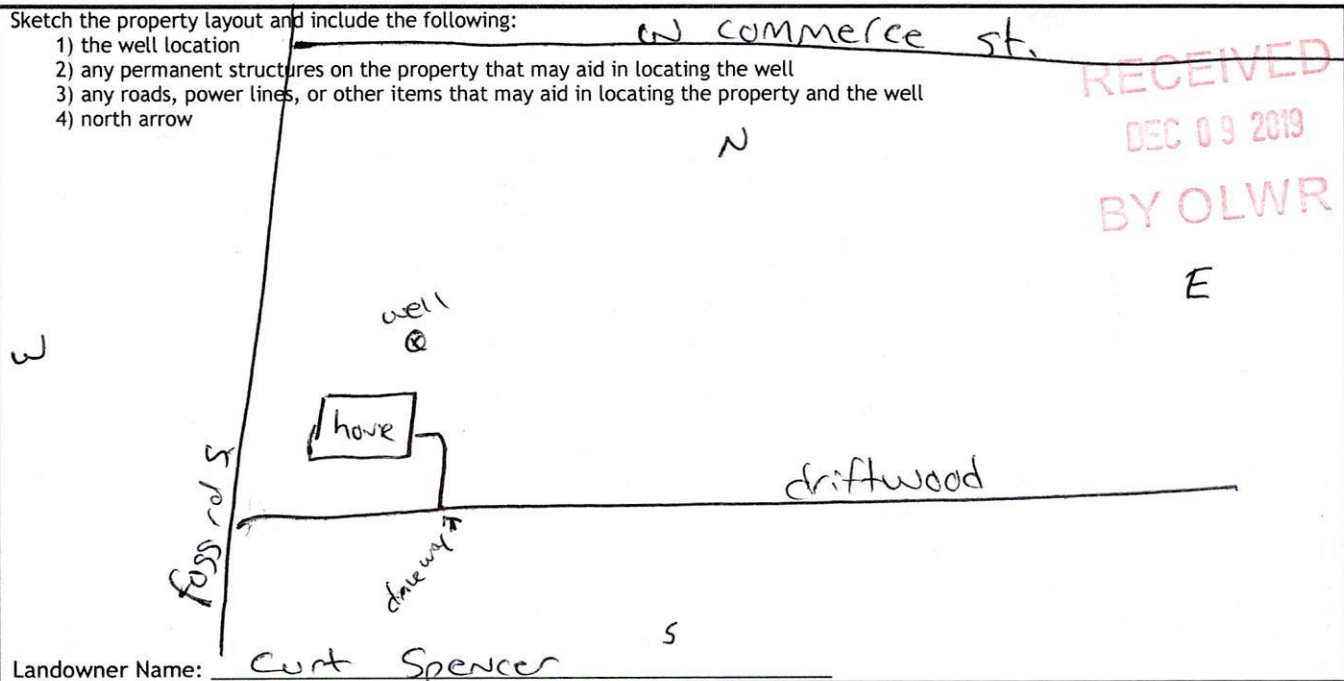 Sketch the property layout and include the following:
1) the well location
2) any permanent structures on the property that may aid in locating the well
3) any roads, power lines, or other items that may aid in locating the property and the well
4) north arrow
W Commerce st.
RECEIVED
DEC 09 2019
BY OLWR
N
E
W
well
house
driftwood
fogg rd S
driveway
S
Landowner Name: Curt Spencer